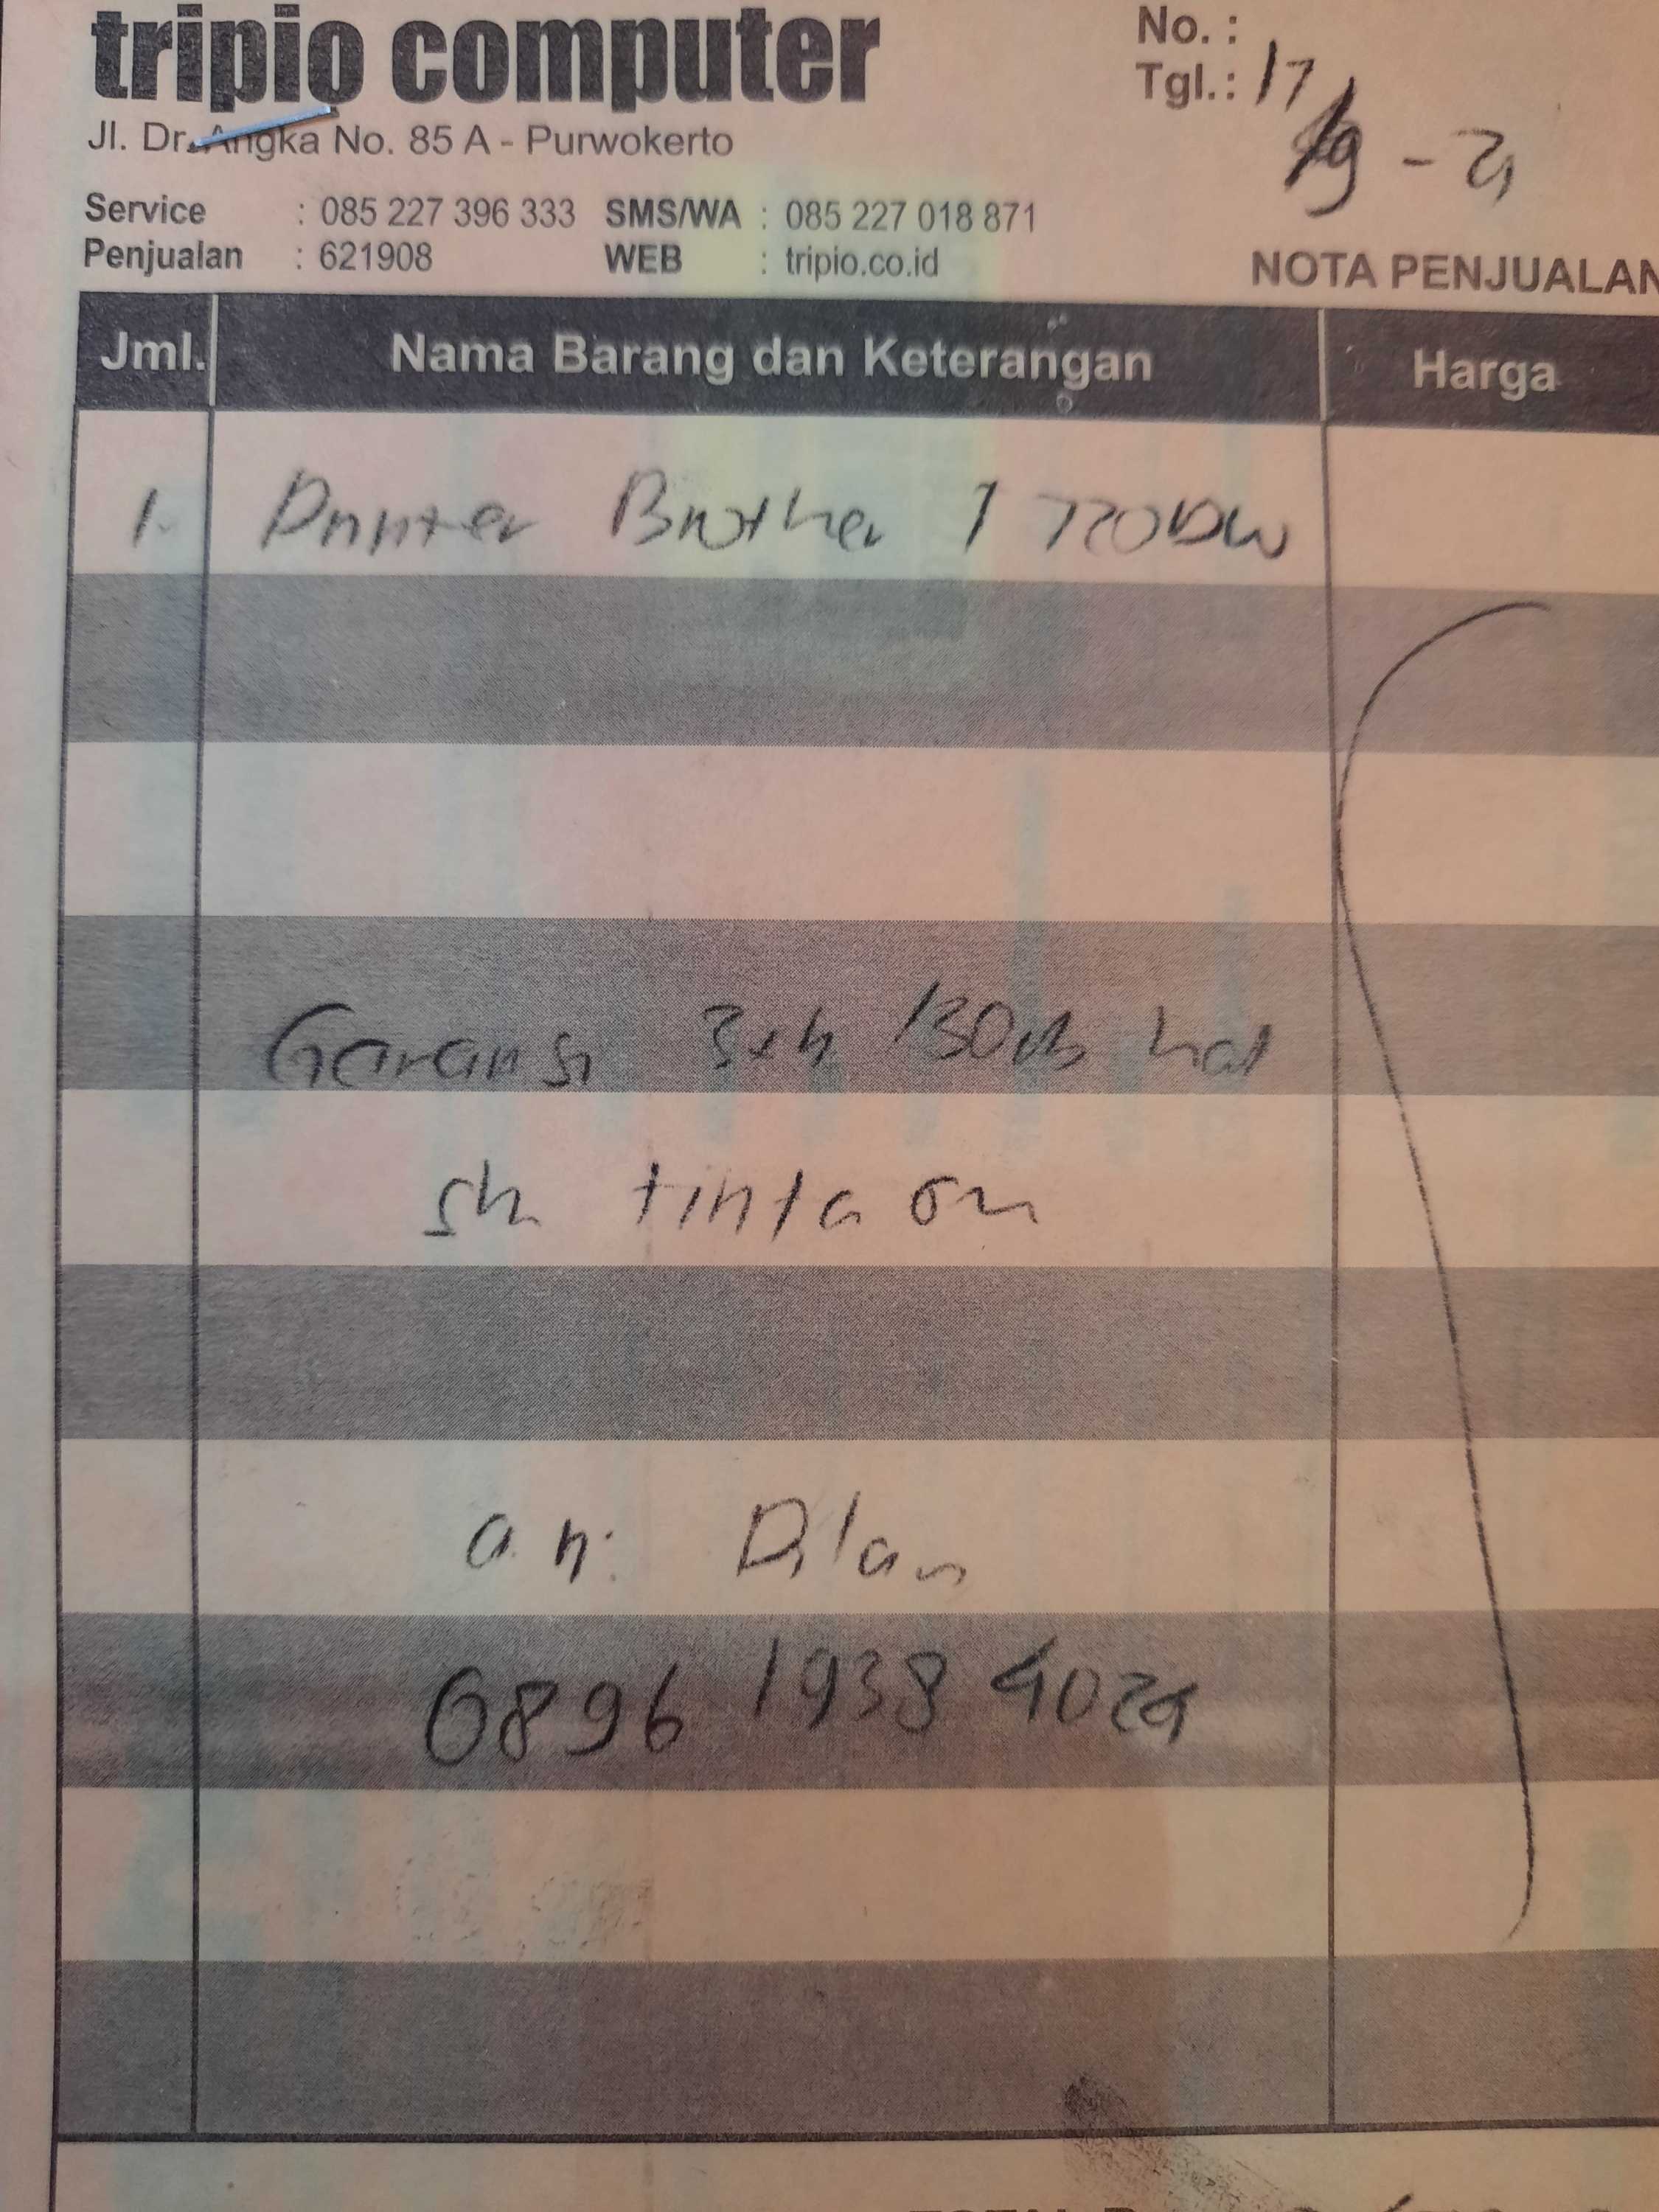 tripio computer
No. :
Tgl. : 17/9 - 21
Jl. Dr. Angka No. 85 A - Purwokerto
Service : 085 227 396 333 SMS/WA : 085 227 018 871
Penjualan : 621908 WEB : tripio.co.id
NOTA PENJUALAN
Jml. Nama Barang dan Keterangan Harga
1. Printer Brother T 720DW
Garansi 3th /30rb hal
sh tinta ori
a.n. Dilan
0896 1938 4024